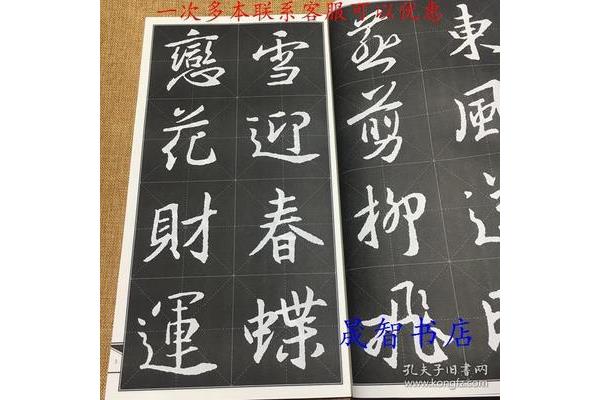 一次多本联系客服可以优惠
東風
燕剪柳飛
雪迎春蝶
戀花財運
晟智书店
孔夫子旧书网
www.kongfz.com